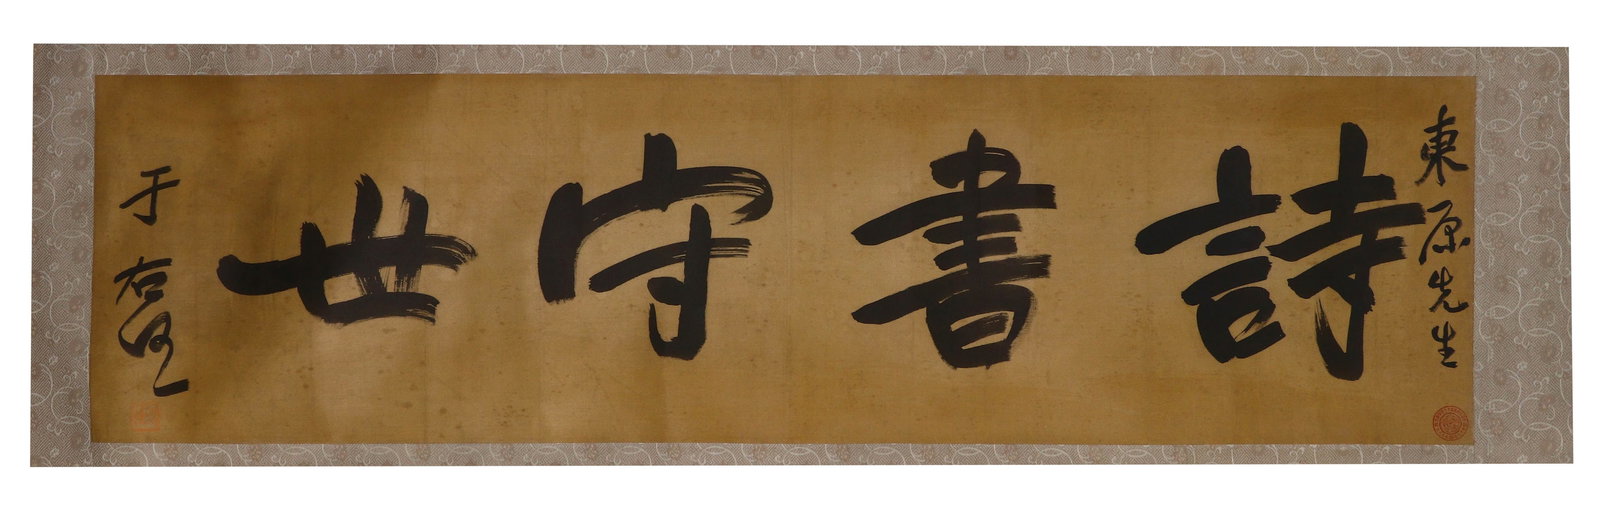 東原先生
詩書守世
于右任